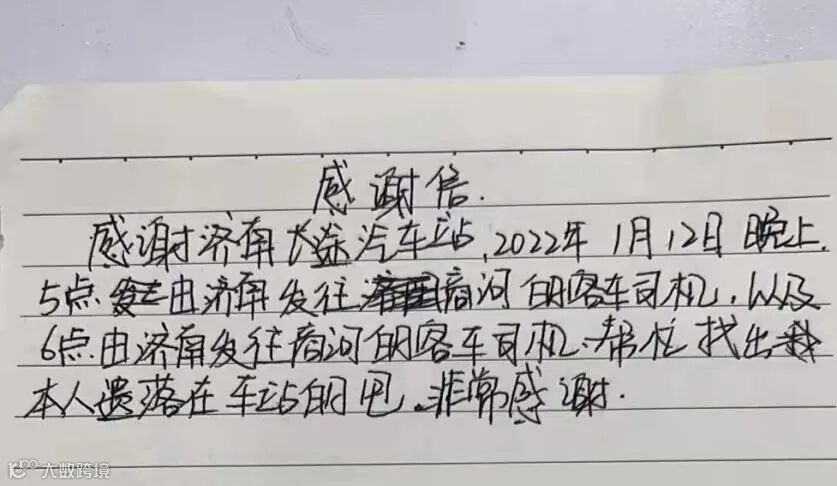 感谢信.
感谢济南长途汽车站,2022年1月12日晚上.
5点.由济南发往商河的客车司机.以及
6点.由济南发往商河的客车司机.帮忙找出
本人遗落在车站的包.非常感谢.
大数跨境